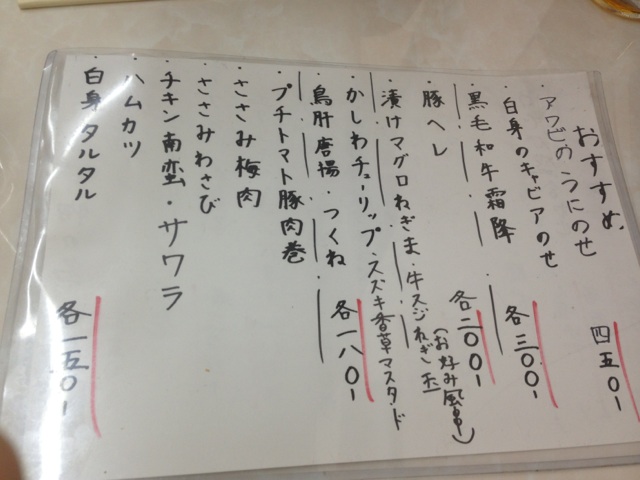 おすすめ
・アワビのうにのせ 四五〇-
・白身のキャビアのせ 各三〇〇-
・黒毛和牛霜降
・豚ヘレ 各二〇〇-
・漬けマグロねぎま・牛スジねぎ玉(お好み風串)
・かしわチューリップ・スズキ香草マスタード
・鳥肝唐揚・つくね 各一八〇-
・プチトマト豚肉巻
・ささみ梅肉
・ささみわさび
・チキン南蛮・サワラ
・ハムカツ
・白身タルタル 各一五〇-